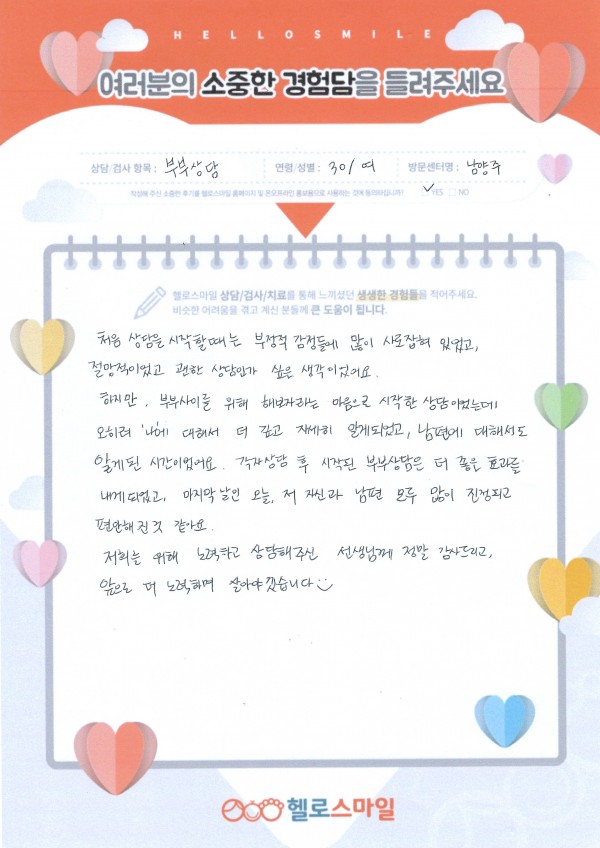 HELLOSMILE
여러분의 소중한 경험담을 들려주세요
상담/검사 항목 : 부부상담 연령/성별 : 30/여 방문센터명 : 남양주
작성해 주신 소중한 후기를 헬로스마일 홈페이지 및 온오프라인 홍보용으로 사용하는 것에 동의하십니까? ✓YES □ NO
헬로스마일 상담/검사/치료를 통해 느끼셨던 생생한 경험들을 적어주세요.
비슷한 어려움을 겪고 계신 분들께 큰 도움이 됩니다.
처음 상담을 시작할때는 부정적 감정들에 많이 사로잡혀 있었고,
절망적이었고 괜한 상담인가 싶은 생각이었어요.
하지만, 부부사이를 위해 해보자라는 마음으로 시작한 상담이었는데
오히려 '나'에 대해서 더 깊고 자세히 알게되었고, 남편에 대해서도
알게된 시간이었어요. 각자상담 후 시작된 부부상담은 더 좋은 효과를
내게되었고, 마지막 날인 오늘, 저 자신과 남편 모두 많이 진정되고
편안해진 것 같아요.
저희를 위해 노력하고 상담해주신 선생님께 정말 감사드리고,
앞으로 더 노력하며 살아야겠습니다
헬로스마일